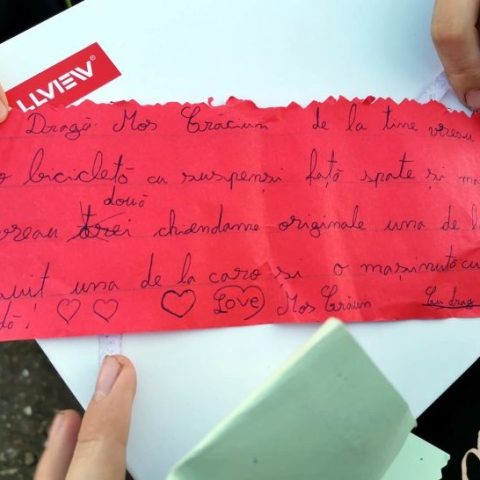 LLVIEW®
Dragă Moș Crăciun de la tine vreau
o bicicletă cu suspensi față spate și ma
două
vreau trei chiendame originale una de l
una de la caro si o mașinuță cu
dă!
Love Moș Crăiun Cu drag